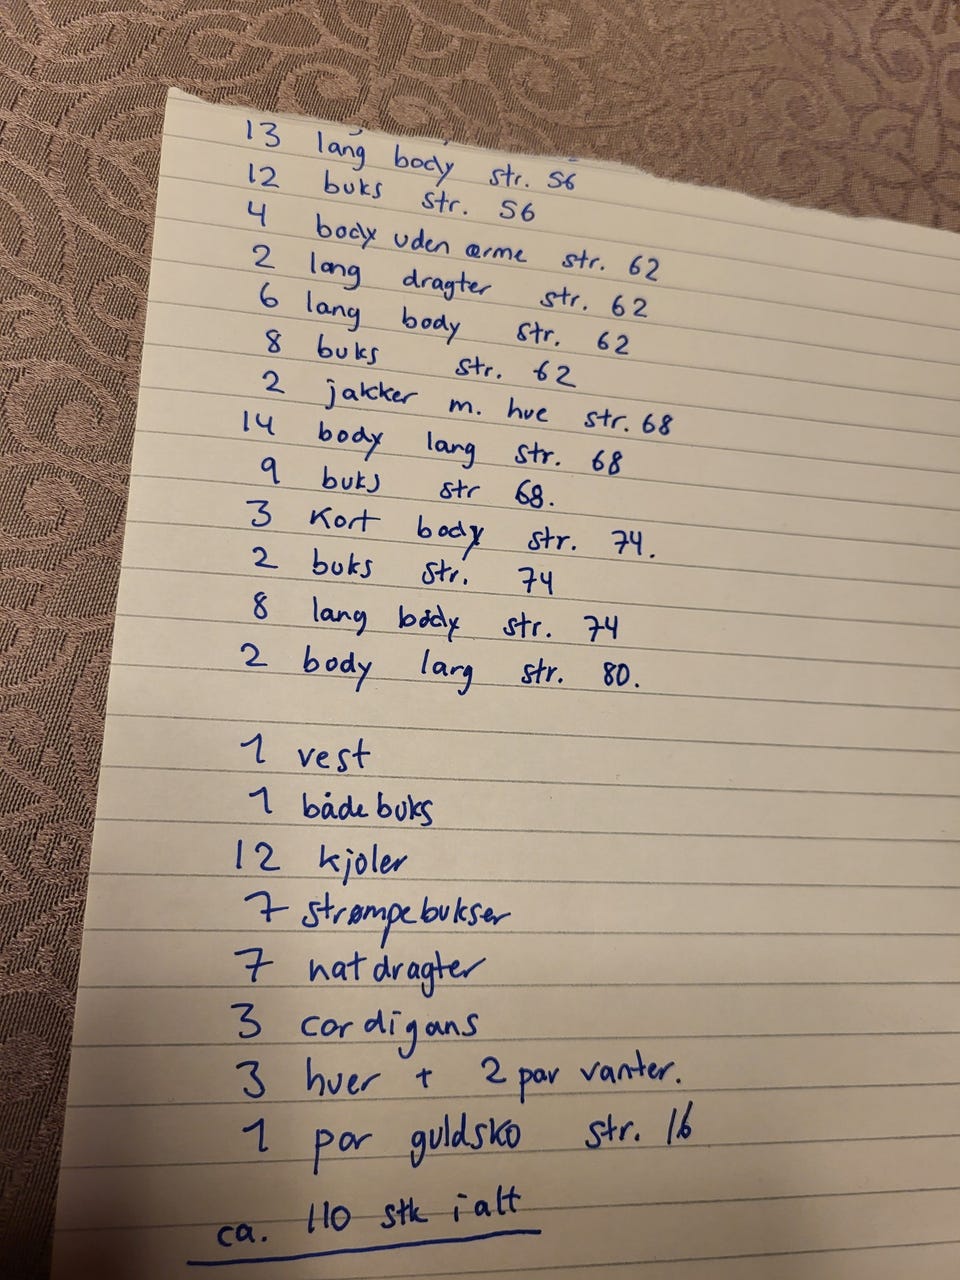 13 lang body str. 56
12 buks str. 56
4 body uden ærme str. 62
2 lang dragter str. 62
6 lang body str. 62
8 buks str. 62
2 jakker m. hue str. 68
14 body lang str. 68
9 buks str 68.
3 Kort body str. 74.
2 buks str. 74
8 lang body str. 74
2 body larg str. 80.
1 vest
1 bådebuks
12 kjoler
7 strømpebukser
7 natdragter
3 cordigans
3 huer + 2 par vanter.
1 par guldsko str. 16
ca. 110 stk ialt